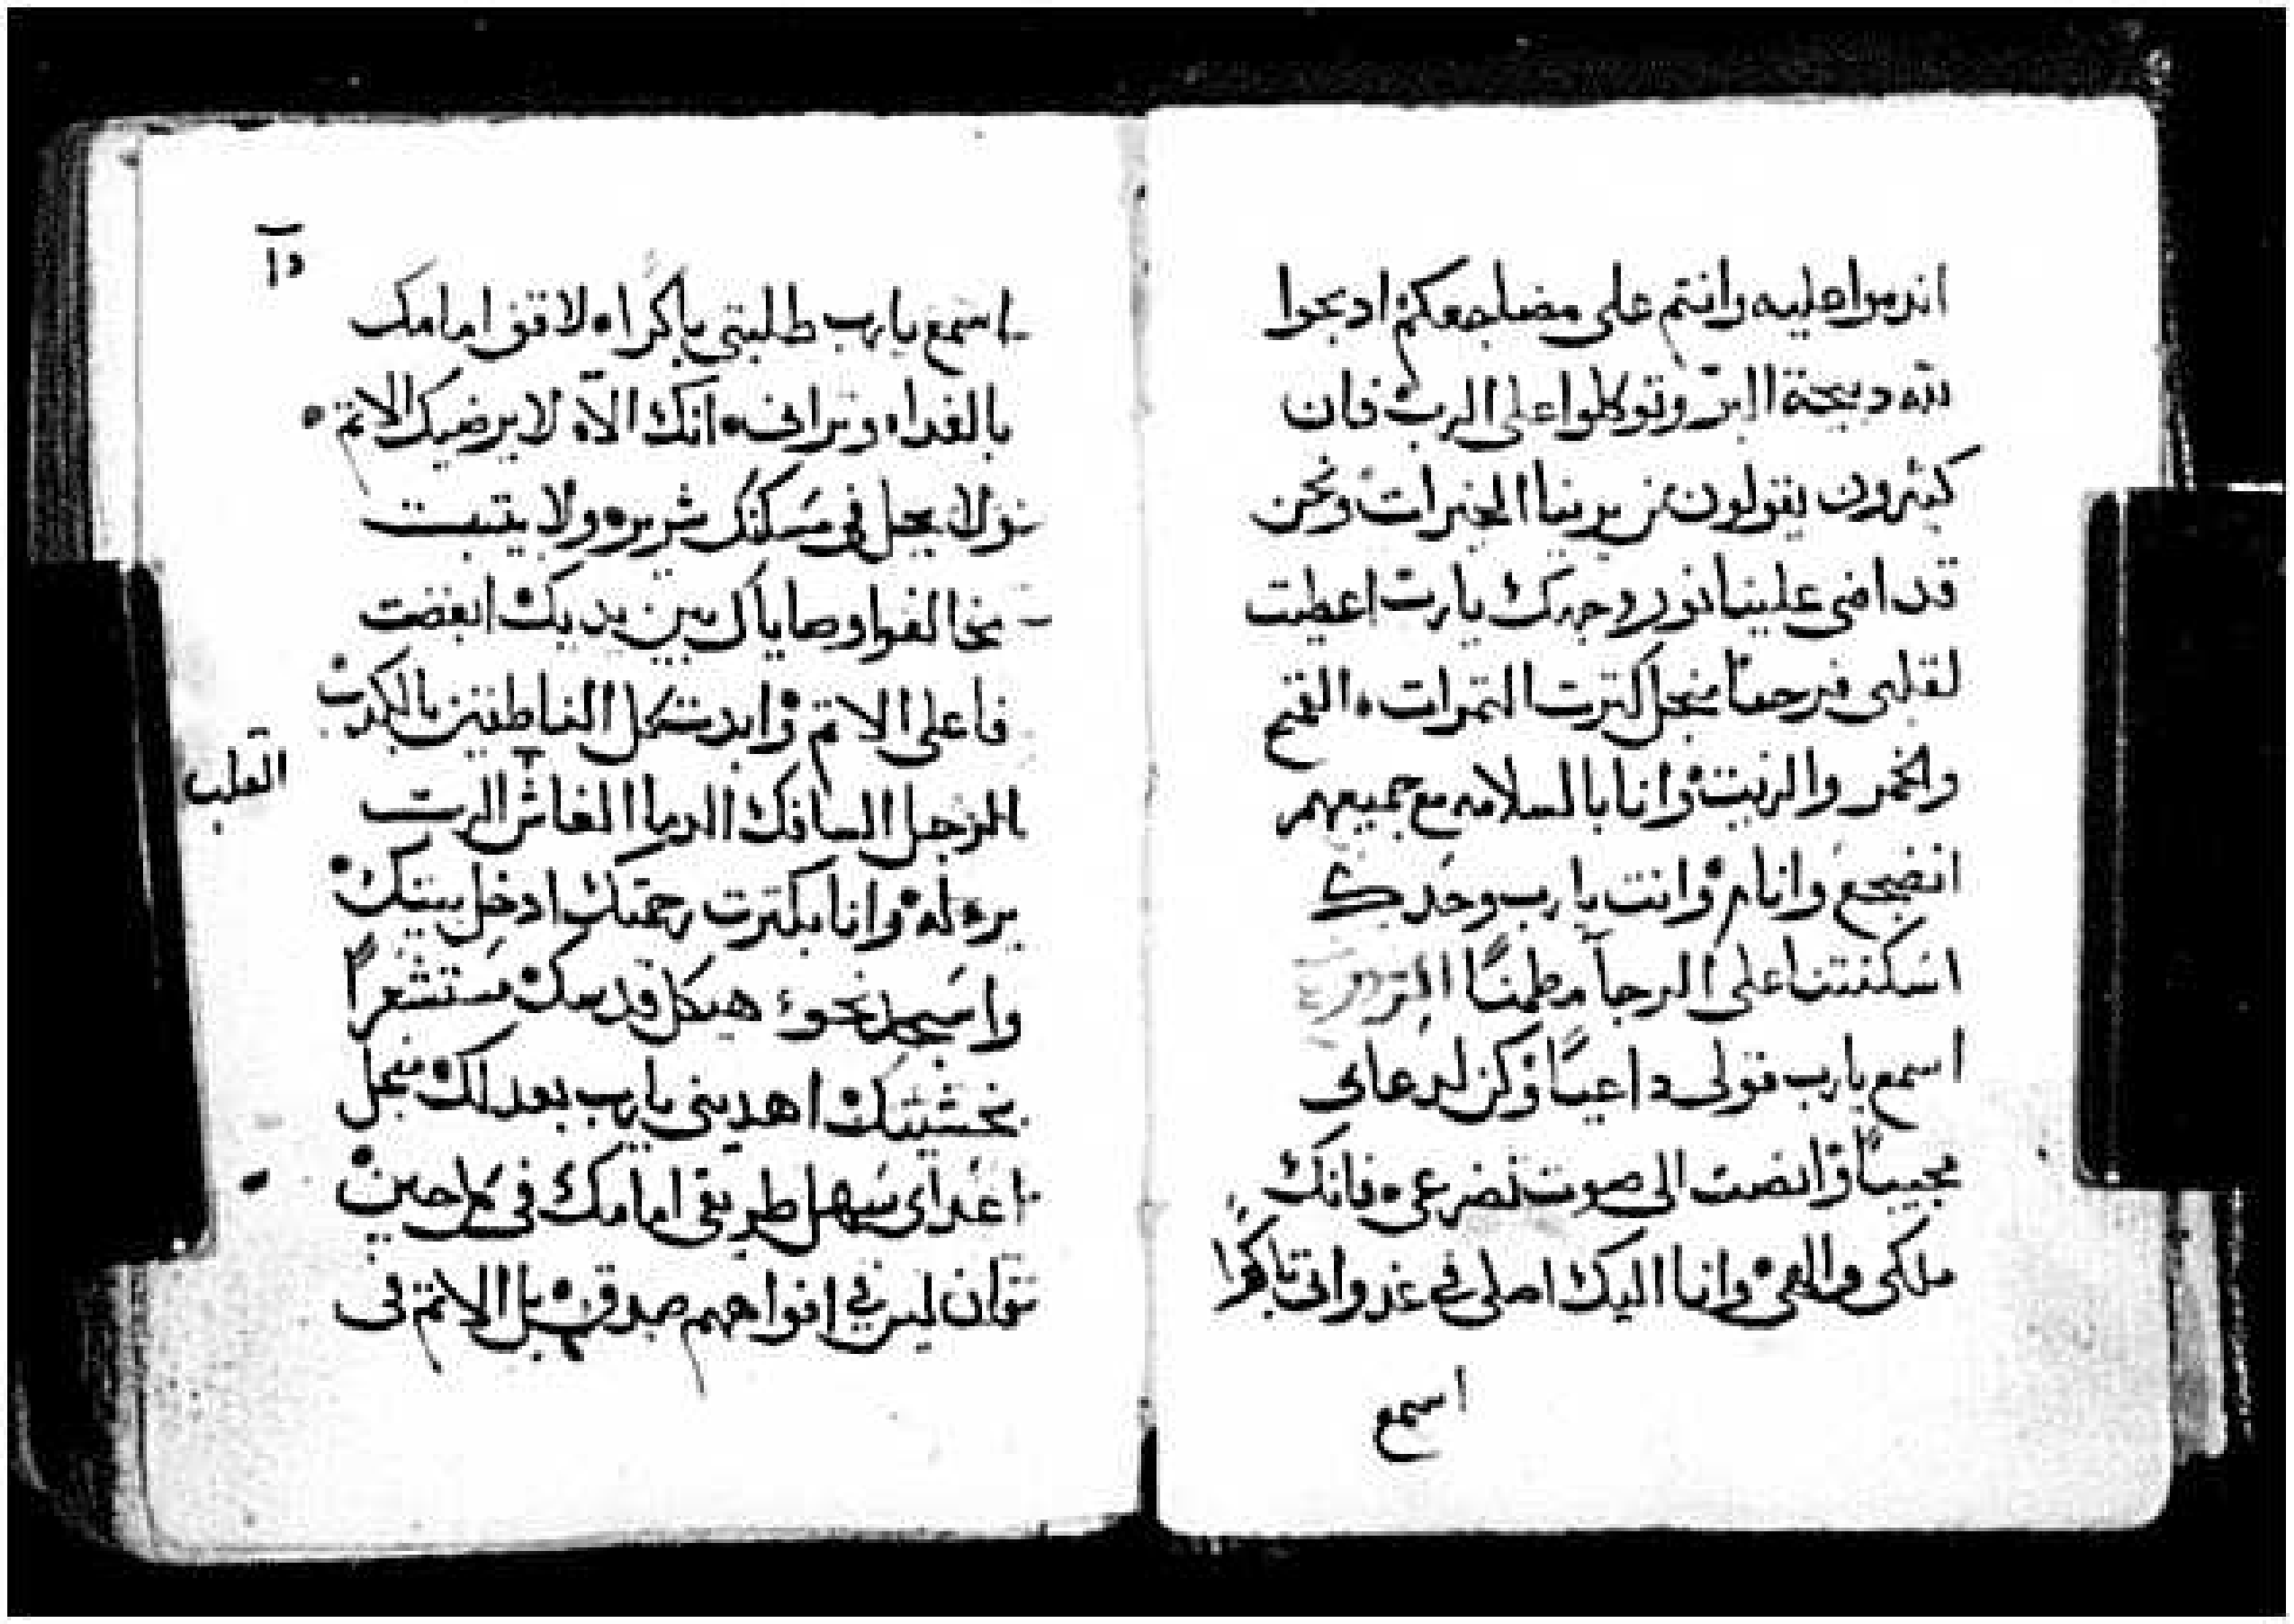 اندموا عليه وانتم على مضاجعكم ادبحوا
لله دبيحة البرّ وتوكلوا على الرب فان
كثيرون يقولون من يرينا الخيرات ونحن
قد اضى علينا نور وجهك يارب اعطيت
لقلبى فرحاً منجل كترت التمرات القمح
والخمر والزيت وانا بالسلامه مع جميعهم
انضجع وانام وانت يارب وحدك
اسكنتنا على الرجآ مطمنًا
اسمع يارب قولى داعياً وكن لدعاى
مجيباً وانصت الى صوت تضرعى فانك
ملكى والهى وانا اليك اصلى فى غدواتى باكرا
اسمع
اسمع يارب طلبتى باكرا لاقف امامك
بالغداه وترانى انك الاه لا يرضيك الاتم
ولا يحل فى مسكنك شريره ولا يتبت
مخالفوا وصاياك بين يديك ابغضت
فاعلى الاتم وابدت كل الناطقين بالكدب
الرجل السافك الدما الغاش الرب
القلب
يرذله وانا بكترت رحمتك ادخل بيتك
واسجد نحو هيكل قدسك مستشعراً
بخشيتك اهدينى يارب بعدلك منجل
اعداى سهل طريقى امامك فى كل حين
فان ليس فى افواههم صدق بل الاتم فى